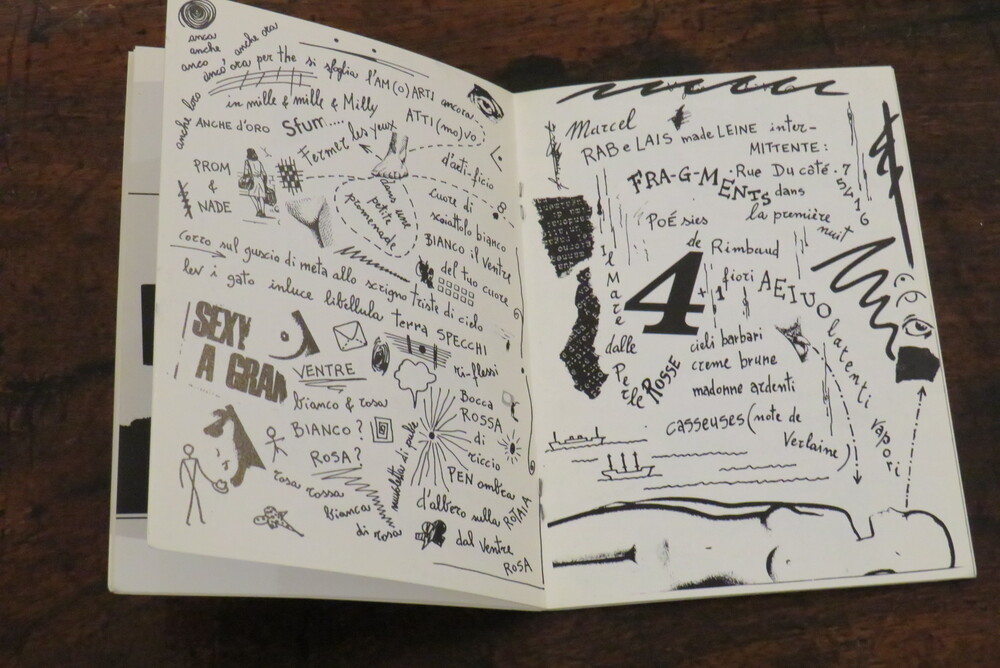 anca
anche
anco
anche ora
anco' ora per the si sfoglia l'AM(O)ARTI ancora
anche loro
in mille & mille & Milly
ATTI(mo)vo
ANCHE d'ORO Sfum....
Fermer les yeux
d'arti-ficio
PROM
&
NADE
dans une
petite
promenade
cuore di
scoiattolo bianco
BIANCO il VENTRE
del tuo cuore
corro sul guscio di meta allo scrigno triste di cielo
lev i gato inluce libellula terra SPECCHI
ri-flessi
SEXY
A GRAN
VENTRE
bianco & rosa
BIANCO?
ROSA?
rosa rossa
bianca
di rosa
Bocca
ROSSA
di
riccio
PEN ombra
d'albero sulla ROTAIA
dal ventre
ROSA
Marcel
RAB e LAIS made LEINE inter-
MITTENTE:
FRA-G-MENTS
Rue Du café. 7
5416
dans
la première
nuit
POÉsies
de Rimbaud
4
+1
fiori AEIUO
latenti vapori
il Mare
dalle
Perle ROSSE
cieli barbari
creme brune
madonne ardenti
casseuses (note de
Verlaine)